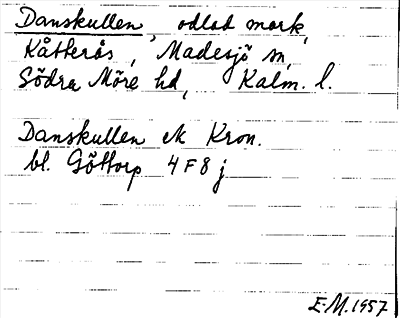 Danskullen, odlad mark,
Kåtterås, Madesjö sn,
Södra Möre hd, Kalm. l.
Danskullen ek Kron.
bl. Göttorp 4F8j
E.M. 1957